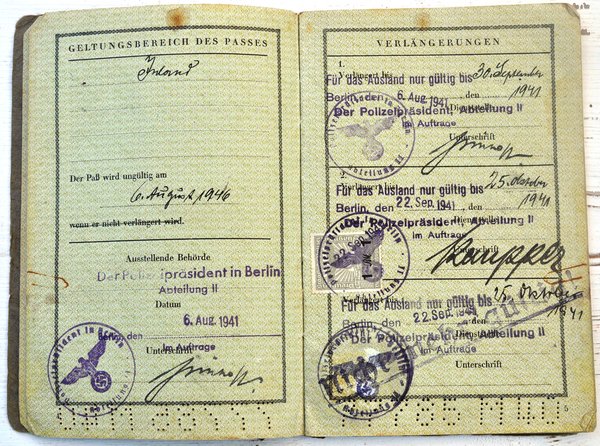 GELTUNGSBEREICH DES PASSES
Inland
Der Paß wird ungültig am
6. August 1946
wenn er nicht verlängert wird.
Ausstellende Behörde
Der Polizeipräsident in Berlin
Abteilung II
Datum
6. Aug. 1941
Berlin, den
Im Auftrage
Unterschrift
VERLÄNGERUNGEN
1.
Verlängert bis
Für das Ausland nur gültig bis 30. September
1941
Berlin, den 6. Aug. 1941, den
Dienststelle
Der Polizeipräsident, Abteilung II
Im Auftrage
Unterschrift
2.
Verlängert bis
Für das Ausland nur gültig bis 25. Oktober
1941
Berlin, den 22. Sep. 1941, den
Der Polizeipräsident, Abteilung II
im Auftrage
Unterschrift
22. Sep. 1941
Verlängert bis
Für das Ausland nur gültig bis 25. Oktober
1941
Berlin, den 22. Sep. 1941
Der Polizeipräsident, Abteilung II
Im Auftrage
Unterschrift
5